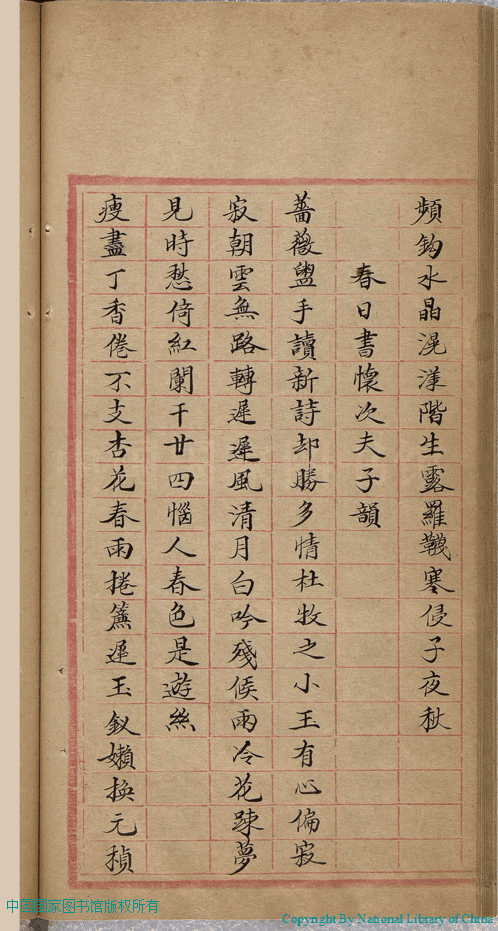 頻鈎水晶滉漾階生露羅韈寒侵子夜秋
春日書懷次夫子韻
薔薇盥手讀新詩却勝多情杜牧之小玉有心偏寂
寂朝雲無路轉遲遲風清月白吟殘候雨冷花踈夢
見時愁倚紅闌干廿四惱人春色是遊絲
瘦盡丁香倦不支杏花春雨捲簾遲玉釵嬾換元稹
中国国家图书馆版权所有
Copyright By National Library of China